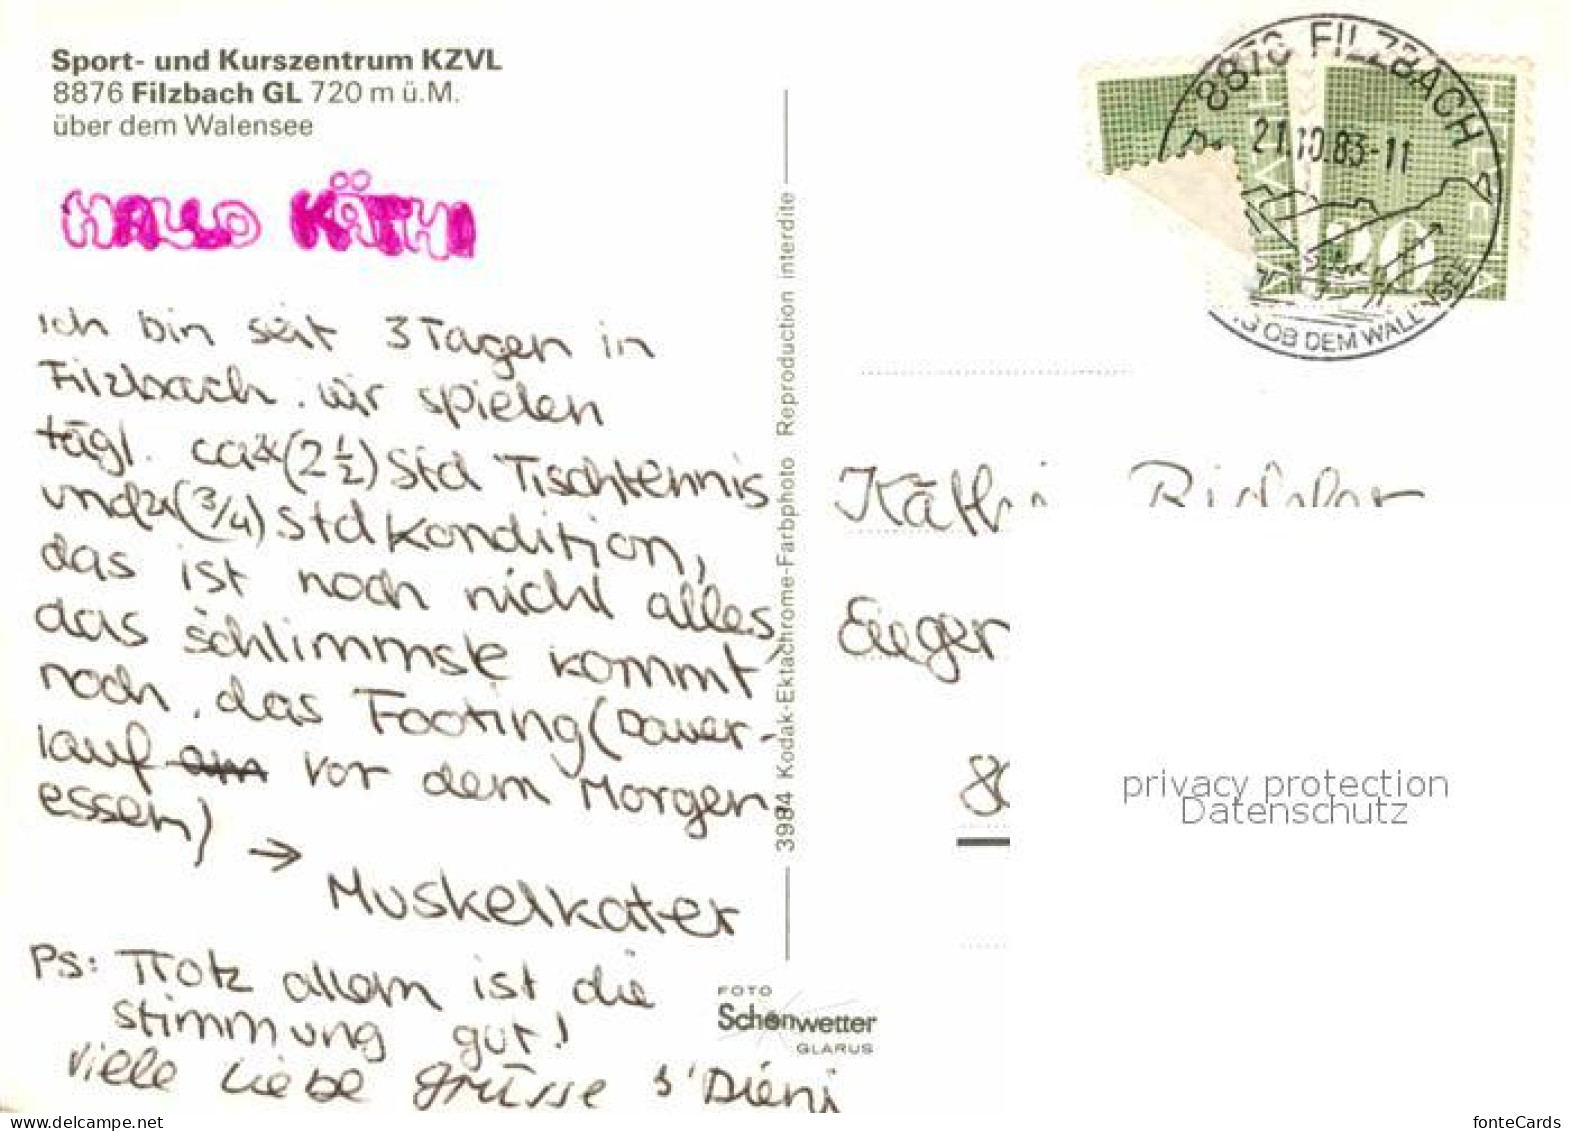 Sport- und Kurszentrum KZVL
8876 Filzbach GL 720 m ü.M.
über dem Walensee
HALLO KÄTHI
Ich bin seit 3 Tagen in
Filzbach. wir spielen
tägl. ca 2x (2 1/2) Std Tischtennis
und 2x (3/4) Std Kondition,
das ist noch nicht alles,
das schlimmste kommt
noch, das Footing (Dauer-
lauf vor dem Morgen
essen)
→ Muskelkater
Ps: Trotz allem ist die
stimmung gut!
Viele Liebe grüsse s'Diéni
3984 Kodak-Ektachrome-Farbphoto Reproduction interdite
FOTO
Schönwetter
GLARUS
8876 FILZBACH
21.10.83-11
OB DEM WALENSEE
HELVETIA
HELVETIA
20
Käthi
80
privacy protection
Datenschutz
fonteCards